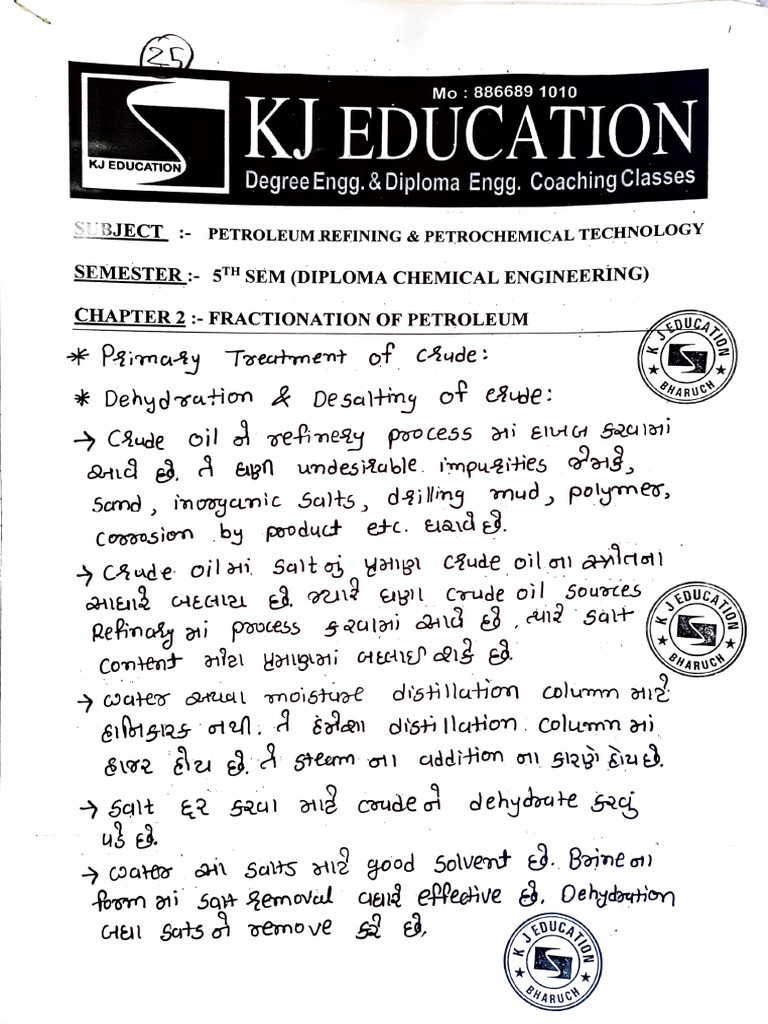 25
Mo : 886689 1010
KJ EDUCATION
KJ EDUCATION
Degree Engg. & Diploma Engg. Coaching Classes
SUBJECT :- PETROLEUM REFINING & PETROCHEMICAL TECHNOLOGY
SEMESTER :- 5TH SEM (DIPLOMA CHEMICAL ENGINEERING)
CHAPTER 2 :- FRACTIONATION OF PETROLEUM
KJ EDUCATION
BHARUCH
* Primary Treatment of Crude:
* Dehydration & Desalting of crude:
→ Crude oil ને refinery process માં દાખલ કરવામાં
આવે છે. તે ઘણી undesirable impurities જેમકે,
sand, inorganic salts, drilling mud, polymer,
corrosion by product etc. ધરાવે છે.
→ Crude oil માં salt નું પ્રમાણ crude oil ના સ્ત્રોતના
આધારે બદલાય છે. જ્યારે ઘણા crude oil sources
Refinary માં process કરવામાં આવે છે, ત્યારે salt
content મોટા પ્રમાણમાં બદલાઈ શકે છે.
KJ EDUCATION
BHARUCH
→ water અથવા moisture distillation column માટે
હાનિકારક નથી. તે હંમેશા distillation column માં
હાજર હોય છે. તે steam ના addition ના કારણે હોય છે.
→ salt દૂર કરવા માટે crude ને dehydrate કરવું
પડે છે.
→ water આ salts માટે good solvent છે. Brine ના
form માં salt removal વધારે effective છે. Dehydration
બધા salts ને remove કરે છે.
KJ EDUCATION
BHARUCH